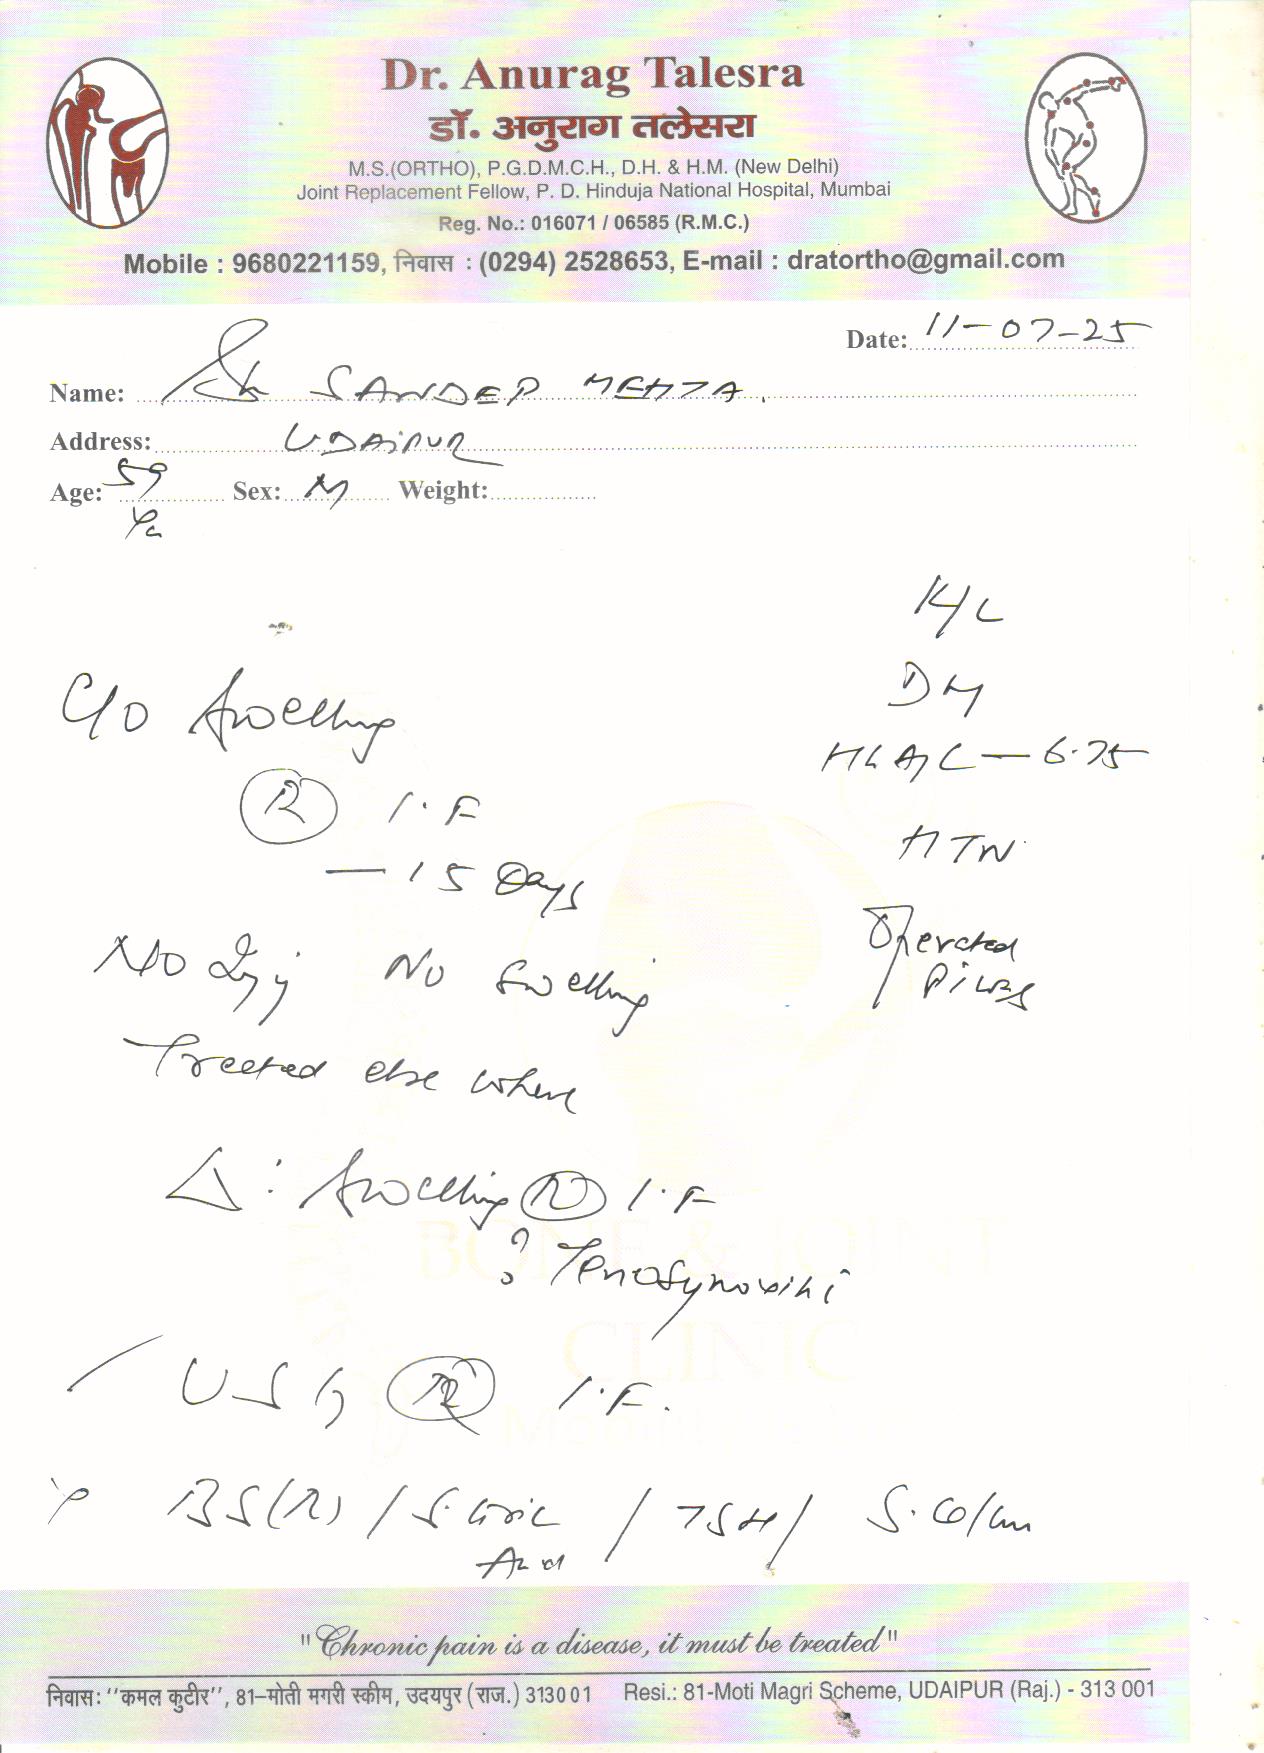 Dr. Anurag Talesra
डॉ. अनुराग तलेसरा
M.S.(ORTHO), P.G.D.M.C.H., D.H. & H.M. (New Delhi)
Joint Replacement Fellow, P. D. Hinduja National Hospital, Mumbai
Reg. No.: 016071 / 06585 (R.M.C.)
Mobile : 9680221159, निवास : (0294) 2528653, E-mail : dratortho@gmail.com
Date: 11-07-25
Name: SANDEP MEHTA
Address: UDAIPUR
Age: 59 Sex: M Weight:
K/c
DM
HbA1C — 6.75
HTN
Operated
Piles
C/O Swelling
(R) I.F
— 15 Days
No Inj No Swelling
Treated else where
Δ: Swelling (R) I.F
? Tenosynoviti
USG (R) I.F.
BS(R) / S. Uric / TSH / S.
Acid
BONE & JOINT
CLINIC
"Chronic pain is a disease, it must be treated"
निवास: "कमल कुटीर", 81-मोती मगरी स्कीम, उदयपुर (राज.) 313001 Resi.: 81-Moti Magri Scheme, UDAIPUR (Raj.) - 313 001